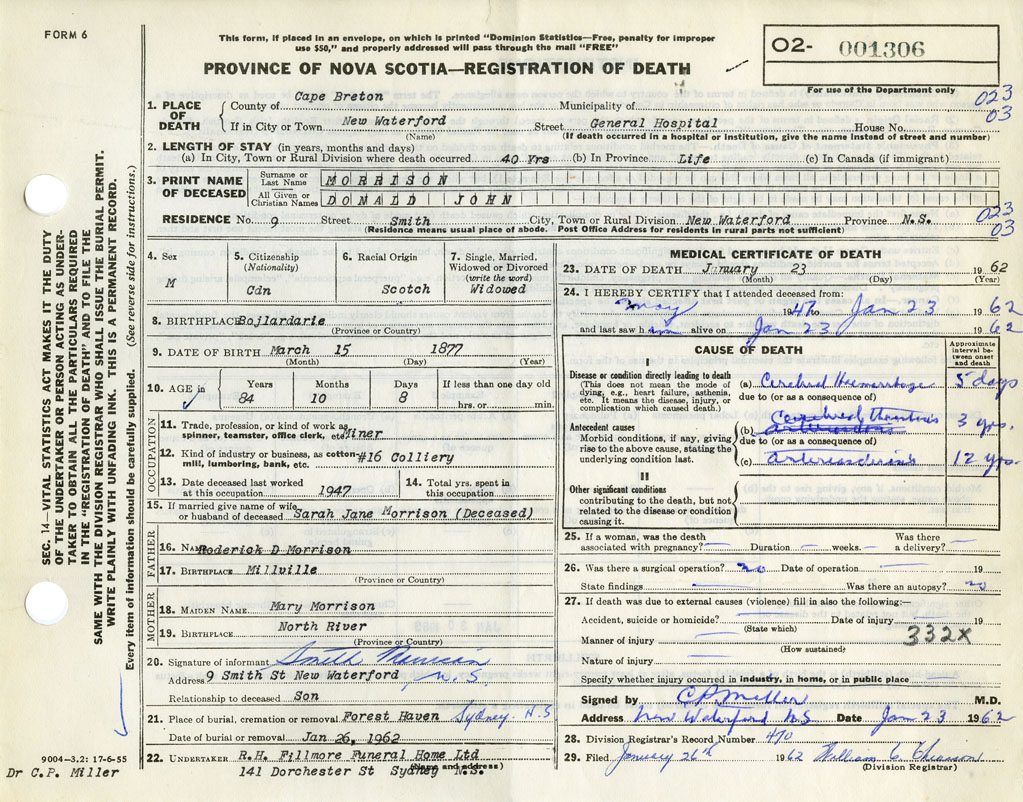 FORM 6
This form, if placed in an envelope, on which is printed "Dominion Statistics—Free, penalty for improper
use $50," and properly addressed will pass through the mail "FREE"
PROVINCE OF NOVA SCOTIA—REGISTRATION OF DEATH
O2- 001306
For use of the Department only
023
03
1. PLACE OF DEATH { County of Cape Breton Municipality of
If in City or Town New Waterford Street General Hospital House No.
(Name) (If death occurred in a hospital or institution, give the name instead of street and number)
2. LENGTH OF STAY (in years, months and days)
(a) In City, Town or Rural Division where death occurred 40 Yrs (b) In Province Life (c) In Canada (if immigrant)
3. PRINT NAME OF DECEASED Surname or Last Name MORRISON
All Given or Christian Names DONALD JOHN
RESIDENCE No. 9 Street Smith City, Town or Rural Division New Waterford Province N.S.
(Residence means usual place of abode. Post Office Address for residents in rural parts not sufficient)
023
03
4. Sex M
5. Citizenship (Nationality) Cdn
6. Racial Origin Scotch
7. Single, Married, Widowed or Divorced (write the word) Widowed
8. BIRTHPLACE Bojlardarie
(Province or Country)
9. DATE OF BIRTH March 15 1877
(Month) (Day) (Year)
10. AGE in Years Months Days If less than one day old
84 10 8 hrs. or min.
OCCUPATION
11. Trade, profession, or kind of work as spinner, teamster, office clerk, etc. Miner
12. Kind of industry or business, as cotton mill, lumbering, bank, etc. #16 Colliery
13. Date deceased last worked at this occupation 1947
14. Total yrs. spent in this occupation
15. If married give name of wife or husband of deceased Sarah Jane Morrison (Deceased)
FATHER
16. NAME Roderick D Morrison
17. BIRTHPLACE Millville
(Province or Country)
MOTHER
18. MAIDEN NAME Mary Morrison
19. BIRTHPLACE North River
(Province or Country)
20. Signature of informant Smith
Address 9 Smith St New Waterford N.S.
Relationship to deceased Son
21. Place of burial, cremation or removal Forest Haven Sydney. N.S
Date of burial or removal Jan 26, 1962
22. UNDERTAKER R.H. Fillmore Funeral Home Ltd
(Name and address)
141 Dorchester St Sydney N.S.
MEDICAL CERTIFICATE OF DEATH
23. DATE OF DEATH January 23 1962
(Month) (Day) (Year)
24. I HEREBY CERTIFY that I attended deceased from:
May 1947 to Jan 23 1962
and last saw him alive on Jan 23 1962
CAUSE OF DEATH
Approximate interval between onset and death
I
Disease or condition directly leading to death
(This does not mean the mode of dying, e.g., heart failure, asthenia, etc. It means the disease, injury, or complication which caused death.)
(a) Cerebral Hemorrhage 5 days
due to (or as a consequence of)
Antecedent causes
Morbid conditions, if any, giving rise to the above cause, stating the underlying condition last.
(b) Cerebral Thrombosis 3 yrs.
due to (or as a consequence of)
(c) 12 yrs.
II
Other significant conditions
contributing to the death, but not related to the disease or condition causing it.
25. If a woman, was the death associated with pregnancy? — Duration — weeks. — Was there a delivery? —
26. Was there a surgical operation? no Date of operation — 19
State findings — Was there an autopsy? no
27. If death was due to external causes (violence) fill in also the following:—
Accident, suicide or homicide? — Date of injury — 19
(State which)
332X
Manner of injury —
(How sustained)
Nature of injury —
Specify whether injury occurred in industry, in home, or in public place —
Signed by C P Miller M.D.
Address New Waterford N.S Date Jan 23 1962
28. Division Registrar's Record Number 410
29. Filed January 26th 1962 William C.
(Division Registrar)
SEC. 14—VITAL STATISTICS ACT MAKES IT THE DUTY
OF THE UNDERTAKER OR PERSON ACTING AS UNDER-
TAKER TO OBTAIN ALL THE PARTICULARS REQUIRED
IN THE "REGISTRATION OF DEATH" AND TO FILE THE
SAME WITH THE DIVISION REGISTRAR WHO SHALL ISSUE THE BURIAL PERMIT.
WRITE PLAINLY WITH UNFADING INK. THIS IS A PERMANENT RECORD.
Every item of information should be carefully supplied. (See reverse side for instructions.)
9004—3.2: 17-6-55
Dr C.P. Miller